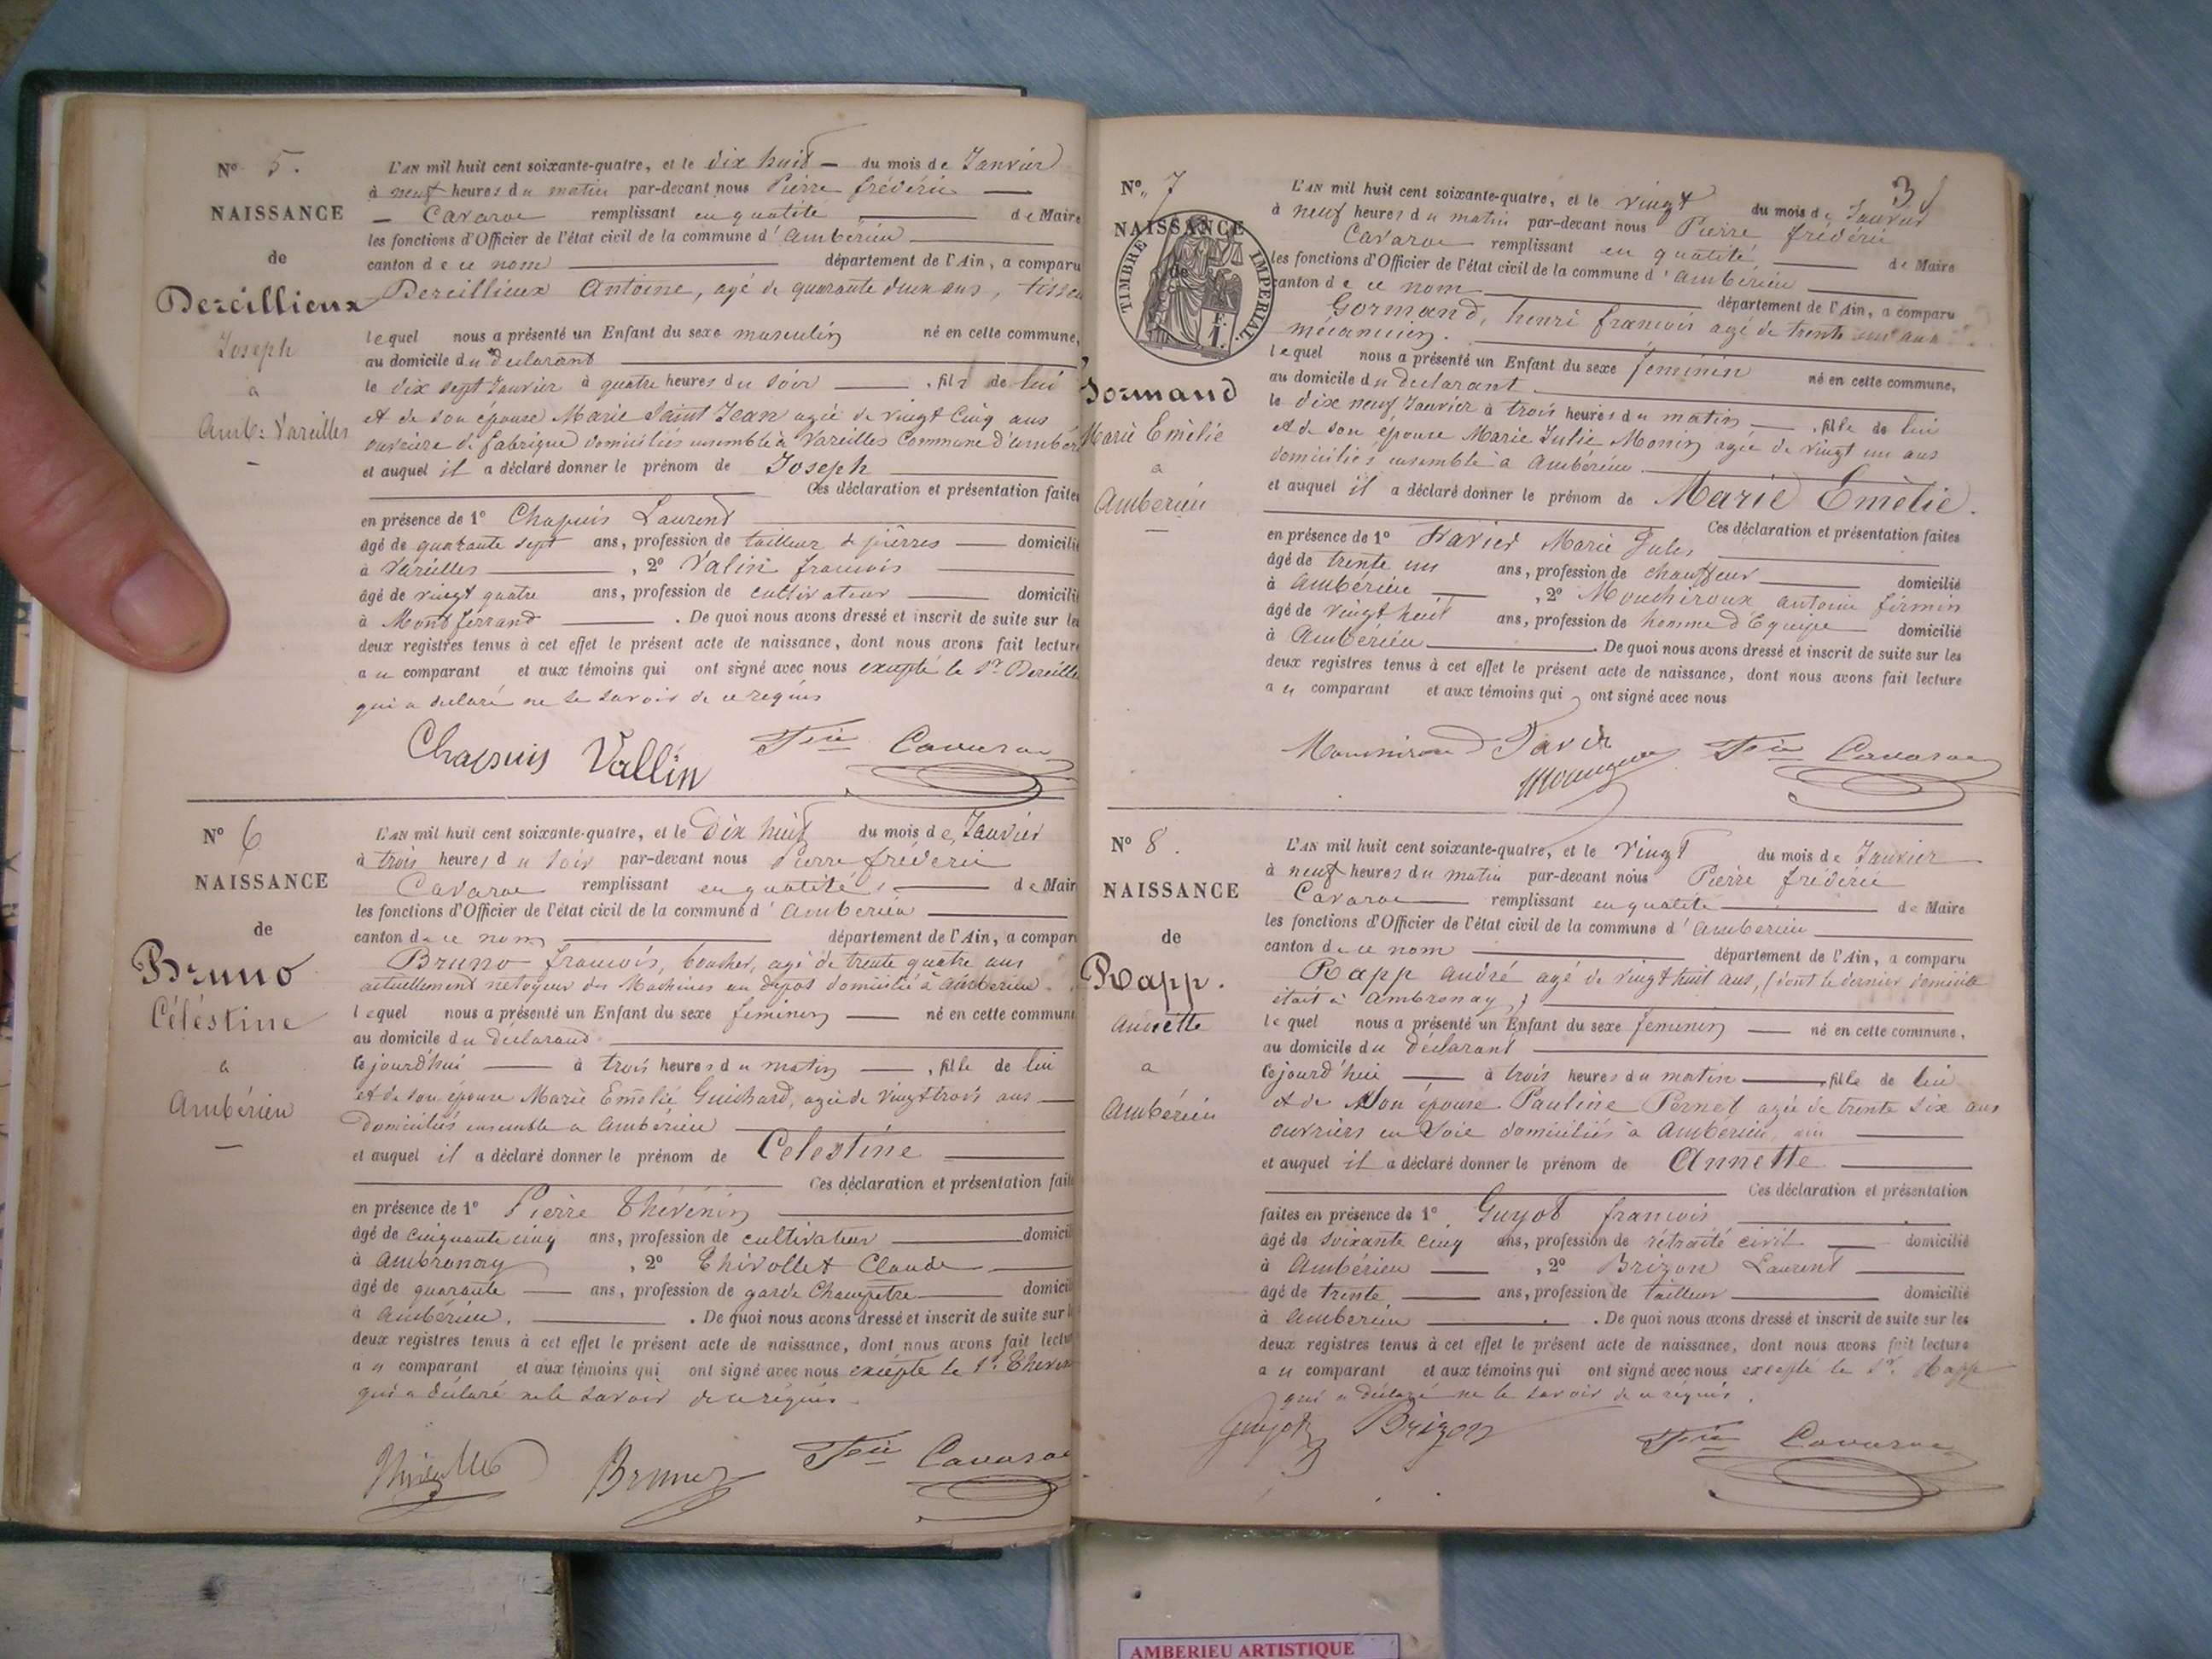 N° 5.
NAISSANCE
de
Dereillieux
Joseph
a
Amb: Vareilles
L'AN mil huit cent soixante-quatre, et le dix huit — du mois de Janvier
à neuf heures du matin par-devant nous Pierre frédéric —
— Cavaroc remplissant en qualité — de Maire
les fonctions d'Officier de l'état civil de la commune d'Ambérieu
canton de ce nom — département de l'Ain, a comparu
Dereillieux Antoine, agé de quarante deux ans,
lequel nous a présenté un Enfant du sexe masculin né en cette commune,
au domicile du declarant
le dix sept Janvier à quatre heures du soir —, fils de lui
et de son épouse Marie Saint Jean agée de vingt Cinq ans
ouvrière de fabrique domiciliés ensemble à Vareilles Commune d'ambér
et auquel il a déclaré donner le prénom de Joseph
Ces déclaration et présentation faites
en présence de 1° Chapuis Laurent
âgé de quarante sept ans, profession de tailleur de pierres — domicilié
à Vareilles —, 2° Valin francois
âgé de vingt quatre ans, profession de cultivateur — domicilié
à Montferrand —. De quoi nous avons dressé et inscrit de suite sur les
deux registres tenus à cet effet le présent acte de naissance, dont nous avons fait lecture
au comparant et aux témoins qui ont signé avec nous excepté le Sr Dereille
qui a declaré ne le savoir de ce requis
Chapuis Vallin Fric Cavaroc
N° 6
NAISSANCE
de
Bruno
Céléstine
a
Ambérieu
L'AN mil huit cent soixante-quatre, et le Dix huit du mois de Janvier
à trois heures du soir par-devant nous Pierre fréderic
Cavaroc remplissant en qualité — de Mair
les fonctions d'Officier de l'état civil de la commune d'Ambérieu
canton de ce nom — département de l'Ain, a compar
Bruno francois, boucher, agé de trente quatre ans
actuellement netoyeur des Machines au dépot domicilié à Ambérieu.
lequel nous a présenté un Enfant du sexe feminin — né en cette commune
au domicile du déclarant
cejourd'hui — à trois heures du matin —, fille de lui
et de son épouse Marie Emélie Guichard, agée de vingt trois ans —
Domiciliés ensemble a Ambérieu
et auquel il a déclaré donner le prénom de Celestine
Ces déclaration et présentation fait
en présence de 1° Pierre Thévenin
âgé de cinquante cinq ans, profession de cultivateur — domici
à Ambronay, 2° Thivollet Claude
âgé de quarante — ans, profession de garde Champêtre — domici
à Ambérieu, —. De quoi nous avons dressé et inscrit de suite sur l
deux registres tenus à cet effet le présent acte de naissance, dont nous avons fait lectu
au comparant et aux témoins qui ont signé avec nous excépte le Sr. Theven
qui a déclaré ne le savoir de ce réquis.
Bruno Fric Cavaroc
3
N° 7
NAISSANCE
de
TIMBRE IMPERIAL
F.
1.
Gormand
Marie Emèlie
a
Ambérieu
L'AN mil huit cent soixante-quatre, et le vingt du mois de Janvier
à neuf heures du matin par-devant nous Pierre frédéric
Cavaroc remplissant en qualité — de Maire
les fonctions d'Officier de l'état civil de la commune d'Ambérieu
canton de ce nom — département de l'Ain, a comparu
Gormand, henri francois agé de trente ans
mécanicien.
lequel nous a présenté un Enfant du sexe feminin né en cette commune,
au domicile du declarant
le dix neuf Janvier à trois heures du matin —, fille de lui
et de son épouse Marie Julie Monin agée de vingt un ans
domiciliés ensemble à Ambérieu.
et auquel il a déclaré donner le prénom de Marie Emèlie.
Ces déclaration et présentation faites
en présence de 1° Marie Jules
âgé de trente un ans, profession de chauffeur — domicilié
à Ambérieu —, 2° Mouchiroux antoine firmin
âgé de vingt huit ans, profession de homme d'Equipe — domicilié
à Ambérieu —. De quoi nous avons dressé et inscrit de suite sur les
deux registres tenus à cet effet le présent acte de naissance, dont nous avons fait lecture
au comparant et aux témoins qui ont signé avec nous
Fric Cavaroc
N° 8.
NAISSANCE
de
Rapp.
Annette
a
Ambérieu
L'AN mil huit cent soixante-quatre, et le vingt du mois de Janvier
à neuf heures du matin par-devant nous Pierre frédéric
Cavaroc — remplissant en qualité — de Maire
les fonctions d'Officier de l'état civil de la commune d'Ambérieu
canton de ce nom — département de l'Ain, a comparu
Rapp andré agé de vingt huit ans, (dont le dernier domicile
était à Ambronay)
lequel nous a présenté un Enfant du sexe feminin — né en cette commune,
au domicile du déclarant
cejourd'hui — à trois heures du matin —, fille de lui
et de son épouse Pauline Pernet agée de trente six ans
ouvriers en Soie domiciliés à Ambérieu
et auquel il a déclaré donner le prénom de Annette
Ces déclaration et présentation
faites en présence de 1° Guyot francois
âgé de soixante cinq ans, profession de rétraité civil — domicilié
à Ambérieu —, 2° Brizon Laurent
âgé de trente, — ans, profession de tailleur — domicilié
à Ambérieu —. De quoi nous avons dressé et inscrit de suite sur les
deux registres tenus à cet effet le présent acte de naissance, dont nous avons fait lecture
au comparant et aux témoins qui ont signé avec nous excepté le Sr. Rapp
qui a déclaré ne le savoir de ce réquis.
Guyot Brizon Fric Cavaroc
AMBERIEU ARTISTIQUE